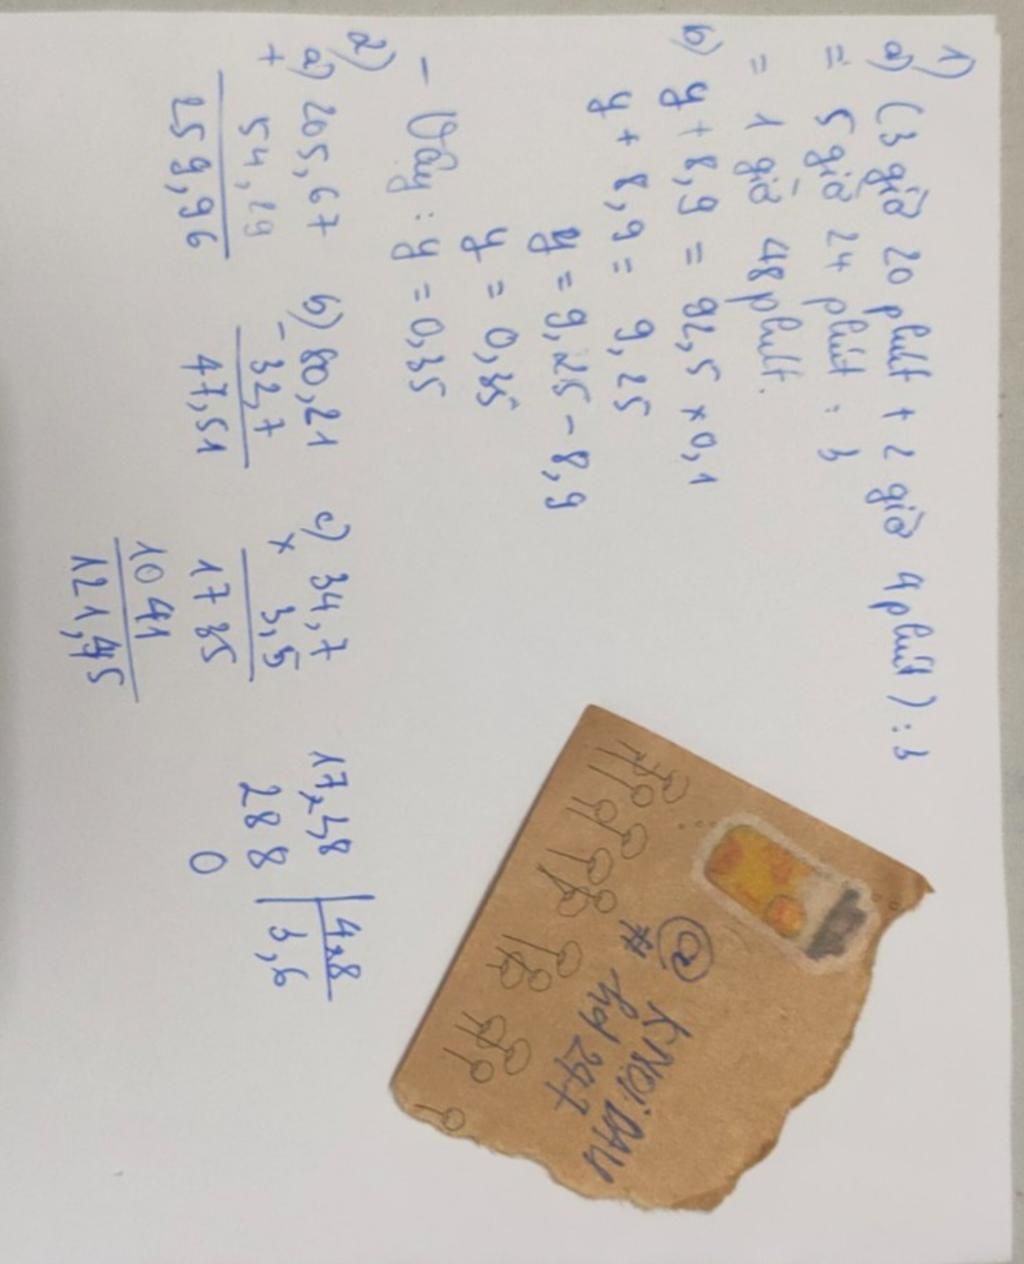 1)
a) (3 giờ 20 phút + 2 giờ 4 phút) : 3
= 5 giờ 24 phút : 3
= 1 giờ 48 phút.
b) y + 8,9 = 92,5 x 0,1
y + 8,9 = 9,25
y = 9,25 - 8,9
y = 0,35
- Vậy : y = 0,35
2)
a) 205,67
+ 54,29
259,96
b) 80,21
- 32,7
47,51
c) 34,7
x 3,5
1735
1041
121,45
17,28 4,8
288 3,6
0
@ KNOiDAU
# hd 247